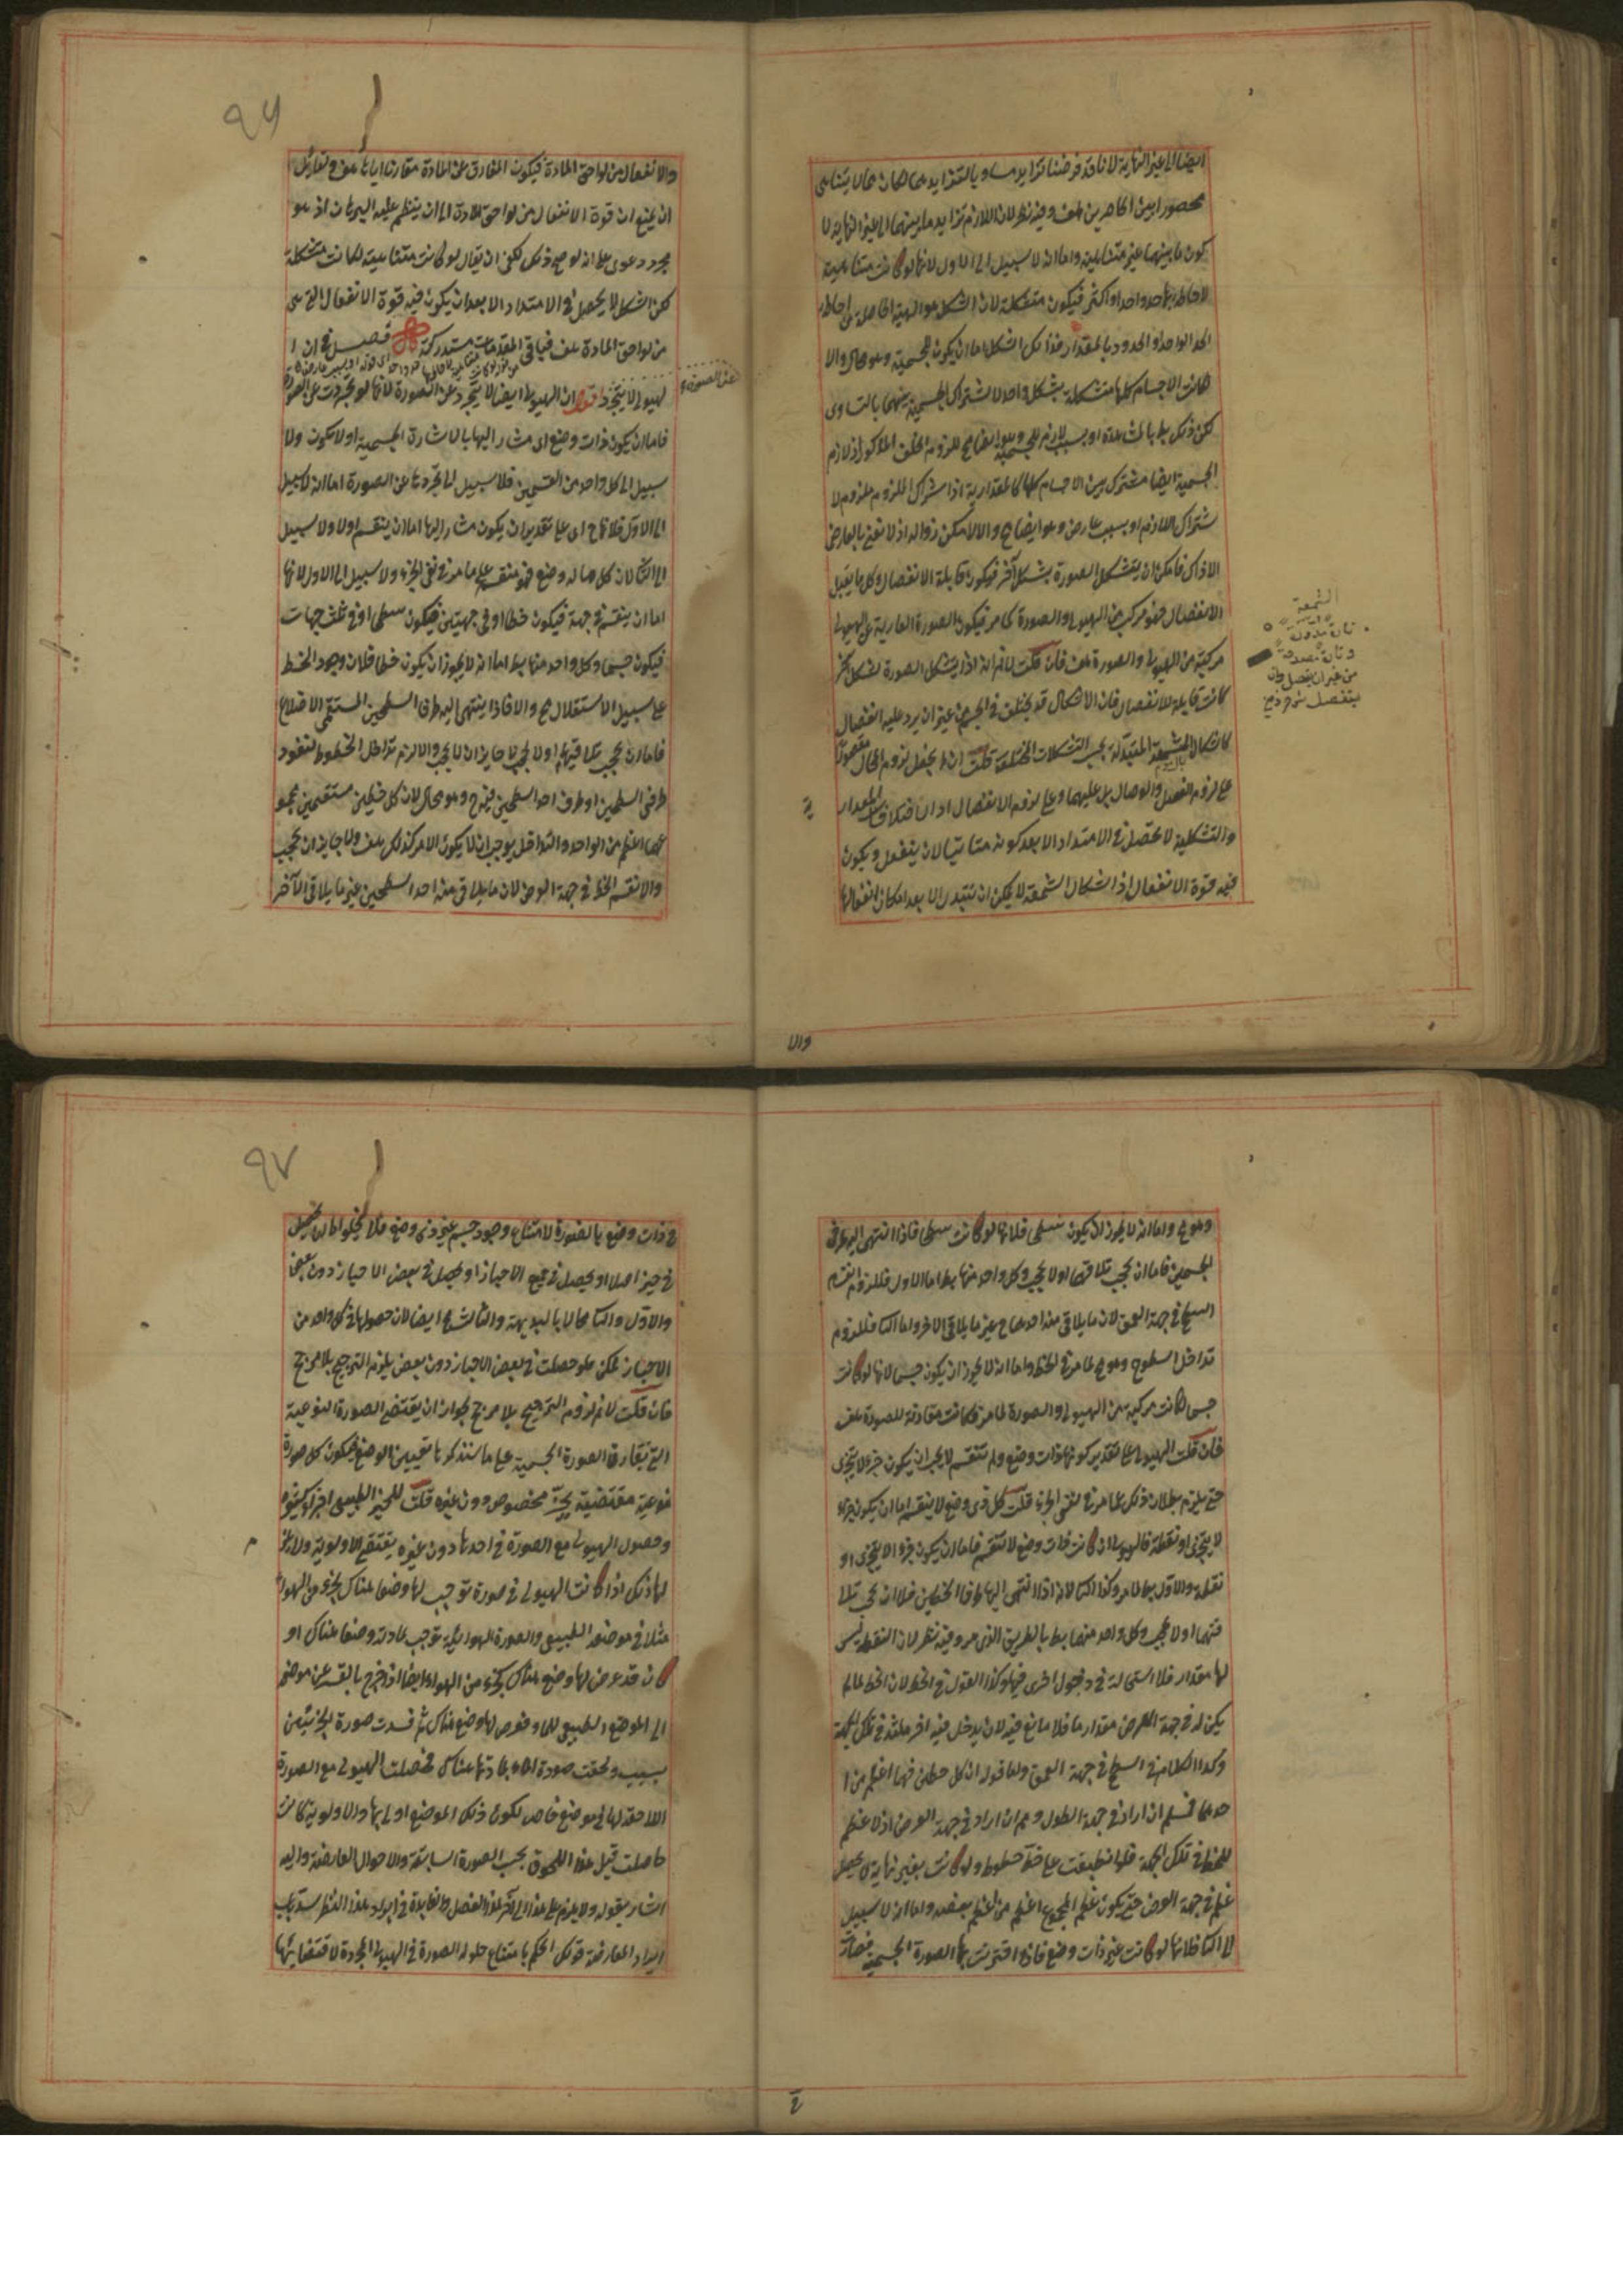 ايضا الى غير النهاية لانا قد فرضنا تزايد مساويا لتزايدهما فكان مالا يتناهى
محصورا بين الحاصرين هف وفيه نظر لان اللازم تزايد ما بينهما الى غير النهاية لا
كون ما بينهما غير متناهية واما انه لا سبيل الى الاول لانها لو كانت متناهية
لاحاط بها حد واحد او اكثر فيكون متشكلة لان الشكل هو الهيئة الحاصلة من احاطة
الحد الواحد او الحدود بالمقدار فذلك الشكل اما ان يكون للجسمية وهو محال والا
كانت الاجسام كلها متشكلة بشكل واحد لاشتراك الجسمية بينهما بالتساوى
لكن ذلك بط بالمشاهدة او بسبب لازم للجسمية وهو ايضا مح للزوم الخلف المذكور اذ لازم
الجسمية ايضا مشترك بين الاجسام كلها كالمقدارية اذ اشتراك الملزوم ملزوم لا
شتراك اللازم او بسبب عارض وهو ايضا مح والا لامكن زواله اذ لا نعنى بالعارض
الا ذاك فامكن ان يتشكل الصورة بشكل آخر فيكون قابلة الانفصال وكل ما يقبل
الانفصال فهو مركب من الهيولى والصورة كما مر فيكون الصورة العارية عن الهيولى
مركبة من الهيولى والصورة هف فان قلت لا نم انه اذا يتشكل الصورة بشكل آخر
كانت قابلة للانفصال فان الاشكال قد يختلف فى الجسم من غير ان يرد عليه انفصال
كاشكال الشمعة المتبدلة بحسب التشكلات المختلفة قلت انه لم يجعل لزوم المحال مقصورا
على لزوم الفصل والوصال بل عليهما وعلى لزوم الانفعال اذ ان اختلاف المقدارية
والتشكلية لا تحصل فى الامتداد الا بعد كونه متاتيا لان ينفعل ويكون
فيه قوة الانفعال اذ اشكال الشمعة لا يمكن ان تتبدل الا بعد امكان انفعالها
الشمعة
تارة تدون
وتارة تصدر
من غير ان ينفصل
والا
٩٦
والانفعال من لواحق المادة فيكون المفارق عن المادة مقارنا اياها هف ولقائل
ان يمنع ان قوة الانفعال من لواحق المادة الى ان ينتظم عليه البرهان اذ هو
مجرد دعوى على انه لو صح ذلك لكفى ان يقال لو كانت متناهية لكانت متشكلة
لكن الشكل لا يحصل فى الامتداد الا بعد ان يكون فيه قوة الانفعال التى هى
من لواحق المادة هف فباقى المقدمات مستدركة فصل فى ان ا
لهيولى لا يتجرد عن الصورة قوله ان الهيولى ايضا لا يتجرد عن الصورة لانها لو تجردت عن الصورة
فاما ان يكون ذات وضع اى مشار اليها بالاشارة الجسمية او لا يكون ولا
سبيل الى كل واحد من القسمين فلا سبيل الى تجردها عن الصورة اما انه لا سبيل
الى الاول فلانها ح اى على تقدير ان يكون مشار اليها اما ان ينقسم او لا ولا سبيل
الى الثانى لان كل ما له وضع فهو منقسم على ما مر فى نفى الجزء ولا سبيل الى الاول لانها
اما ان ينقسم فى جهة فيكون خطا او فى جهتين فيكون سطحا او فى ثلث جهات
فيكون جسما وكل واحد منها بط اما انه لا يجوز ان يكون خطا فلان وجود الخط
على سبيل الاستقلال مح والا فاذا ينتهى اليه طرفا السطحين المستقيمى الاضلاع
فاما ان يحجب تلاقيهما او لا يحجب لا جايز ان لا يحجب والا لزم تداخل الخطوط لنفوذ
طرفى السطحين او طرف احد السطحين فيه ح وهو محال لان كل خطين مستقيمين مجمو
عهما اعظم من الواحد والتداخل يوجب ان لا يكون الامر كذلك هف ولا جايز ان يحجب
والا لانقسم الخط فى جهة العرض لان ما يلاقى من احد السطحين غير ما يلاقى الآخر
وهو مح واما انه لا يجوز ان يكون سطحا فلانها لو كانت سطحا فاذا انتهى اليه طرفى
الجسمين فاما ان يحجب تلاقيهما او لا يحجب وكل واحد منهما بط اما الاول فللزوم انقسام
السطح فى جهة العمق لان ما يلاقى من احدهما ح غير ما يلاقى الاخر واما الثانى فللزوم
تداخل السطوح وهو مح لما مر فى الخط واما انه لا يجوز ان يكون جسما لانها لو كانت
جسما كانت مركبة من الهيولى والصورة لما مر فكانت مقارنة للصورة هف
فان قلت الهيولى على تقدير كونها ذات وضع ولم تنقسم لا يجب ان يكون جزء لا يتجزى
حتى يلزم بطلان ذلك بما مر فى نفى الجزء قلت كل ذى وضع لا ينقسم اما ان يكون جزء
لا يتجزى او نقطة فالهيولى ان كانت ذات وضع لا تنقسم فاما ان يكون جزءا لا يتجزى او
نقطة والاول بط لما مر وكذا الثانى لانه اذا انتهى اليها طرفا الخطين فلا ان يحجب تلا
قيهما او لا يحجب وكل واحد منهما بط بالطريق الذى مر وفيه نظر لان النقطة ليس
لها مقدار فلا استحالة فى دخول اخرى فيها وكذا القول فى الخط لان الخط لما لم
يكن له فى جهة العرض مقدار ما فلا مانع فيه لان يدخل فيه اخر مثله فى تلك الجهة
وكذا الكلام فى السطح فى جهة العمق واما قوله ان كل خطين فهما اعظم من ا
حدهما فمسلم ان اراد فى جهة الطول ومم ان اراد فى جهة العرض اذ لا عظم
للخط فى تلك الجهة فلو انطبقت على خط خطوط ولو كانت بغير نهاية لم يحصل
عظم فى جهة العرض حتى يكون عظم المجموع اعظم من عظم بعضه واما انه لا سبيل
الى الثانى فلانها لو كانت غير ذات وضع فاذا اقترنت بها الصورة الجسمية فصارت
٩٧
ذات وضع بالضرورة لامتناع وجود جسم غير ذى وضع فلا يخلو اما ان لا يحصل
فى حيز اصلا او يحصل فى جميع الاحياز او يحصل فى بعض الاحياز دون بعض
والاول والثانى محالان بالبديهة والثالث مح ايضا لان حصولها فى كل واحد من
الاحياز ممكن فلو حصلت فى بعض الاحياز دون بعض يلزم الترجيح بلا مرجح
فان قلت لا نم لزوم الترجيح بلا مرجح لجواز ان يقتضى الصورة النوعية
التى تقارن الصورة الجسمية على ما سنذكرها تعيين الوضع فيكون كل صورة
نوعية مقتضية بحيز مخصوص دون غيره قلت للحيز الطبيعى اجزاء كثيرة
وحصول الهيولى مع الصورة فى احدها دون غيره يقتضى الاولوية ولا يمكن
لها ذلك اذا كانت الهيولى فى صورة توجب لها وضعا هناك كجزء من الهواء
مثلا فى موضعه الطبيعى والصورة الهوائية توجب لمادته وضعا هناك او
كان قد عرض لها وضع هناك كجزء من الهواء ايضا اذا خرج بالقسر عن موضعه
الى الموضع الطبيعى للماء فعرض لها وضع هناك ثم فسدت صورة الجزئيتين
بسبب ولحقت صورة الماء بمادتها هناك فحصلت الهيولى مع الصورة
اللاحقة لها فى موضع خاص لكون ذلك الموضع اولى بها والاولوية كانت
حاصلة قبل هذا اللحوق بحسب الصورة السابقة والاحوال العارضة واليه
اشار بقوله ولا يلزم على هذا الى آخر هذا الفصل والفايدة فى ايراد هذا النظر سد باب
ايراد المعارضة قولك الحكم بامتناع حلول الصورة فى الهيولى المجردة لاقتضائها